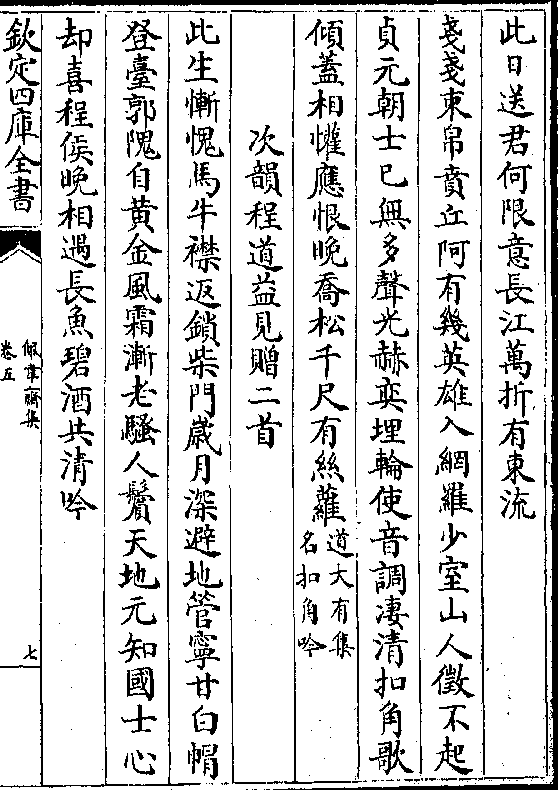 此日送君何限意長江萬折有東流
戔戔束帛賁丘阿有幾英雄入網羅少室山人徵不起
貞元朝士已無多聲光赫奕埋輪使音調凄清扣角歌
傾蓋相懽應恨晚喬松千尺有絲蘿道大有集名扣角吟
次韻程道益見贈二首
此生慚愧馬牛襟返鎖柴門歲月深避地管寧甘白帽
登臺郭隗自黄金風霜漸老騷人鬢天地元知國士心
却喜程侯晚相遇長魚碧酒共清吟
欽定四庫全書
佩韋齋集
卷五
七